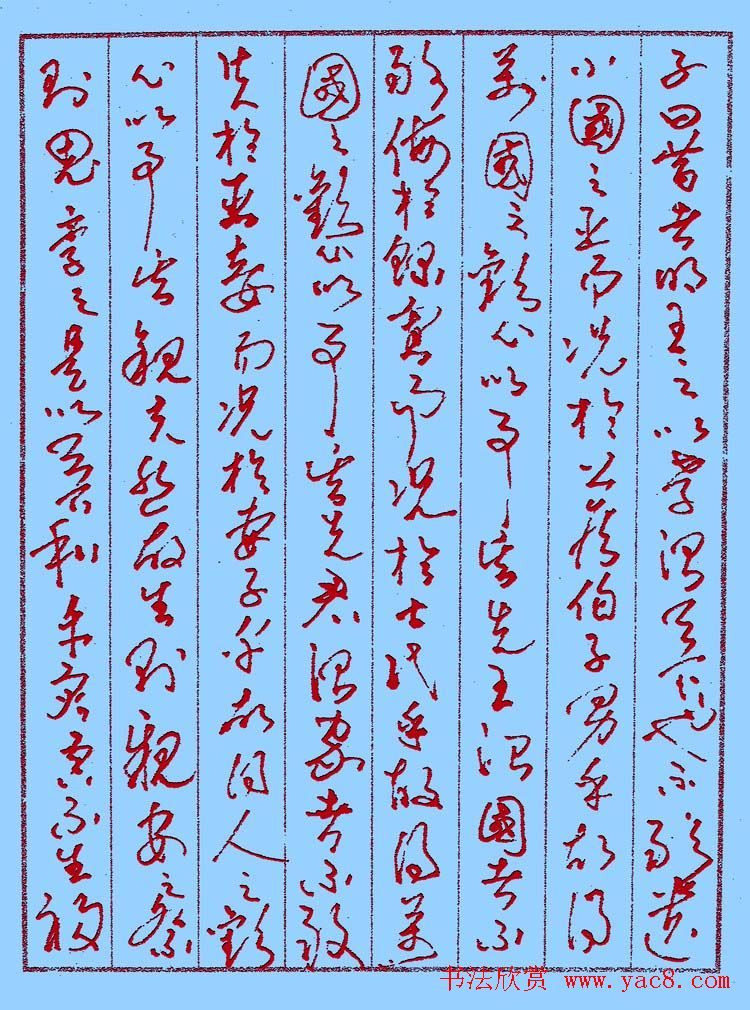 子曰昔者明王之以孝治天下也不敢遺
小國之臣而況於公侯伯子男乎故得
萬國之歡心以事其先王治國者不
敢侮於鰥寡而況於士民乎故得萬
國之歡心以事其先君治家者不敢
失於臣妾而況於妻子乎故得人之歡
心以事其親夫然故生則親安之祭
則鬼享之是以天下和平災害不生禍
书法欣赏 www.yac8.com